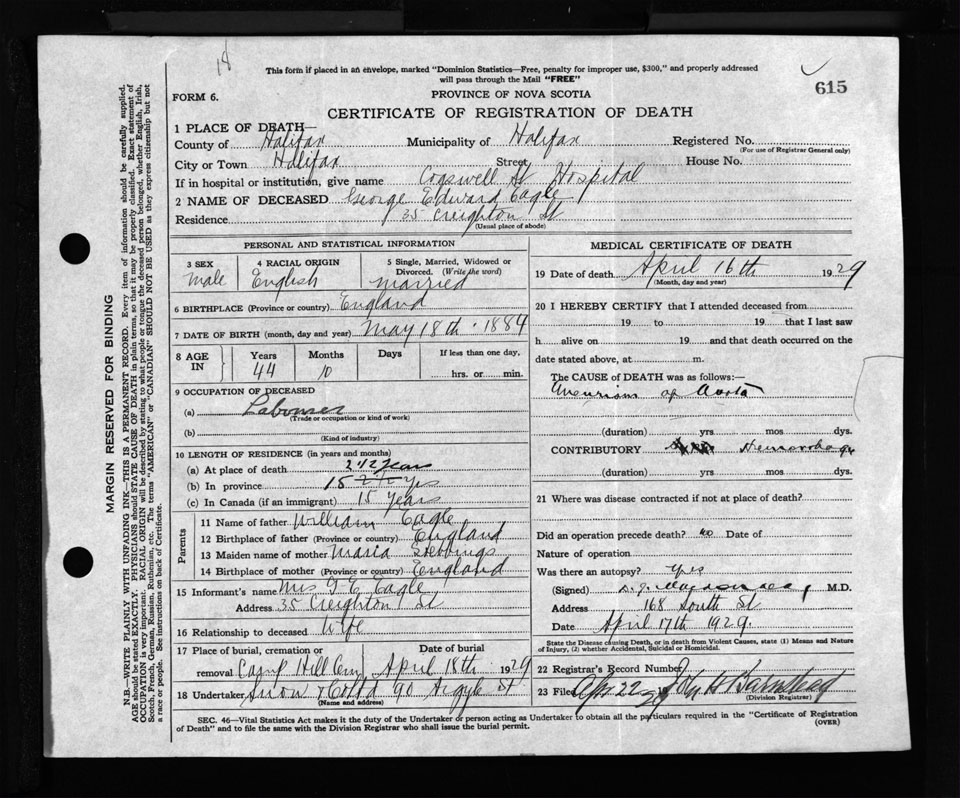 18
This form if placed in an envelope, marked "Dominion Statistics—Free, penalty for improper use, $300," and properly addressed
will pass through the Mail "FREE"
615
FORM 6.
PROVINCE OF NOVA SCOTIA
CERTIFICATE OF REGISTRATION OF DEATH
1 PLACE OF DEATH—
County of Halifax Municipality of Halifax Registered No.
(For use of Registrar General only)
City or Town Halifax Street House No.
If in hospital or institution, give name Cogswell St Hospital
2 NAME OF DECEASED George Edward Eagle
Residence 35 Creighton St
(Usual place of abode)
PERSONAL AND STATISTICAL INFORMATION
3 SEX 4 RACIAL ORIGIN 5 Single, Married, Widowed or
Divorced. (Write the word)
Male English Married
6 BIRTHPLACE (Province or country) England
7 DATE OF BIRTH (month, day and year) May 18th . 1884
8 AGE IN Years Months Days If less than one day,
44 10 hrs. or min.
9 OCCUPATION OF DECEASED
(a) Labourer
(Trade or occupation or kind of work)
(b)
(Kind of industry)
10 LENGTH OF RESIDENCE (in years and months)
(a) At place of death 2 1/2 years
(b) In province 15 yrs
(c) In Canada (if an immigrant) 15 years
Parents
11 Name of father William Eagle
12 Birthplace of father (Province or country) England
13 Maiden name of mother Maria Stebbings
14 Birthplace of mother (Province or country) England
15 Informant's name Mrs G E Eagle
Address 35 Creighton St
16 Relationship to deceased Wife
17 Place of burial, cremation or Date of burial
removal Camp Hill Cem April 18th . 1929
18 Undertaker Snow & Co Ltd 90 Argyle St
(Name and address)
MEDICAL CERTIFICATE OF DEATH
19 Date of death April 16th 1929
(Month, day and year)
20 I HEREBY CERTIFY that I attended deceased from
19 to 19 that I last saw
h alive on 19 and that death occurred on the
date stated above, at m.
The CAUSE OF DEATH was as follows:—
Aneurism of Aorta
(duration) yrs mos dys.
CONTRIBUTORY Hemorrhage
(duration) yrs mos dys.
21 Where was disease contracted if not at place of death?
Did an operation precede death? no Date of
Nature of operation
Was there an autopsy? Yes
(Signed) M.D.
Address 168 South St
Date April 17th 1929.
State the Disease causing Death, or in death from Violent Causes, state (1) Means and Nature
of Injury, (2) whether Accidental, Suicidal or Homicidal.
22 Registrar's Record Number
23 Filed Apr 22 1929 John H Barnstead
(Division Registrar)
SEC. 46—Vital Statistics Act makes it the duty of the Undertaker or person acting as Undertaker to obtain all the particulars required in the "Certificate of Registration
of Death" and to file the same with the Division Registrar who shall issue the burial permit.
(OVER)
MARGIN RESERVED FOR BINDING
N.B.—WRITE PLAINLY WITH UNFADING INK—THIS IS A PERMANENT RECORD. Every item of information should be carefully supplied.
AGE should be stated EXACTLY. PHYSICIANS should STATE CAUSE OF DEATH in plain terms, so that it may be properly classified. Exact statement of
OCCUPATION is very important. RACIAL ORIGIN will be described by stating to what people or tongue the deceased person belonged, whether English, Irish,
Scotch, French, German, Russian, Ruthenian, etc. The terms "AMERICAN" or "CANADIAN" SHOULD NOT BE USED as they express citizenship but not
a race or people. See instructions on back of Certificate.